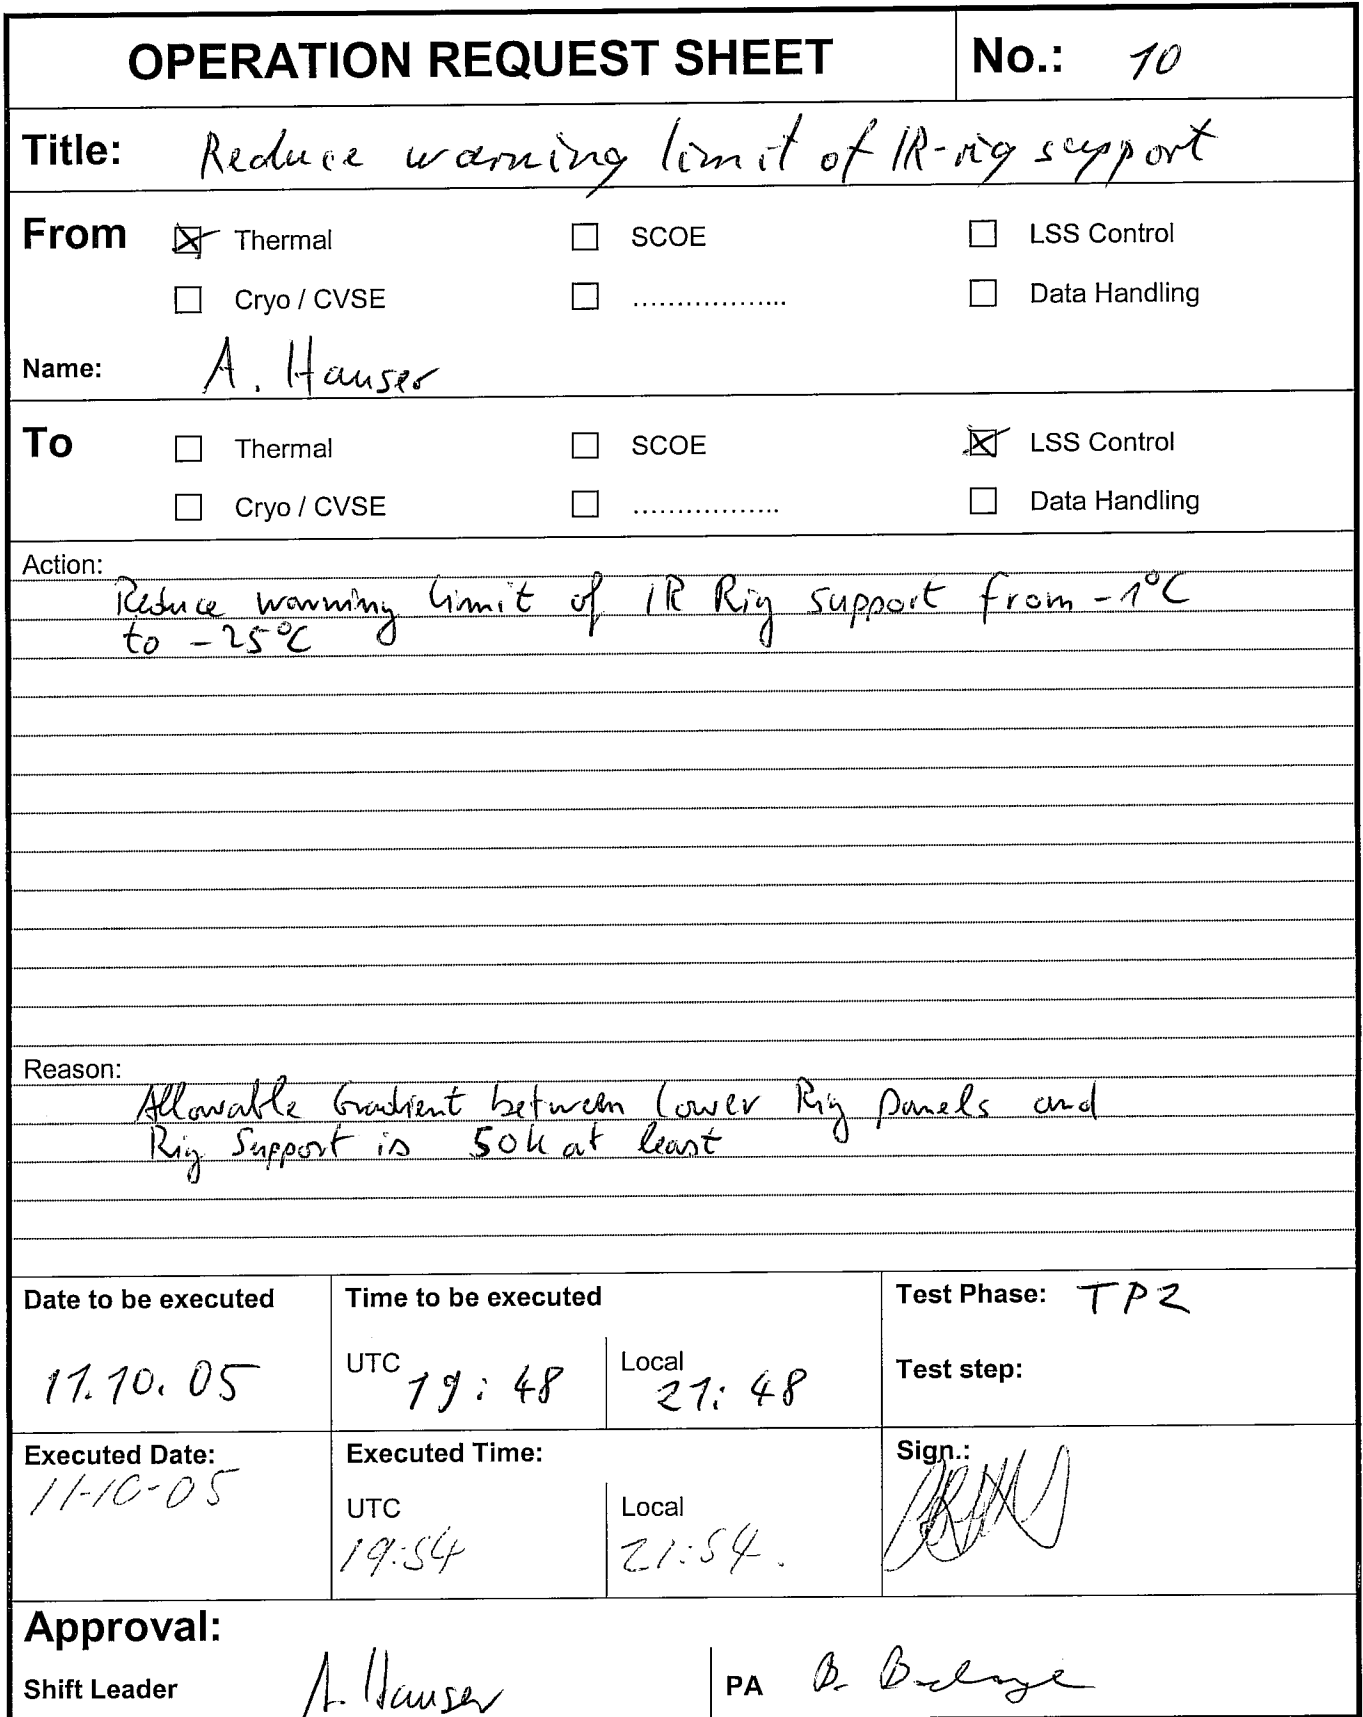 OPERATION REQUEST SHEET No.: 10
Title: Reduce warning limit of IR-rig support
From Thermal SCOE LSS Control
Cryo / CVSE .................. Data Handling
Name: A. Hauser
To Thermal SCOE LSS Control
Cryo / CVSE ................. Data Handling
Action:
Reduce warning limit of IR Rig support from -1°C
to -25°C
Reason:
Allowable Gradient between lower Rig panels and
Rig Support is 50K at least
Date to be executed Time to be executed Test Phase: TP2
11.10.05 UTC 19:48 Local 21:48 Test step:
Executed Date: Executed Time: Sign.:
11-10-05 UTC Local
19:54 21:54.
Approval:
Shift Leader A. Hauser PA B.